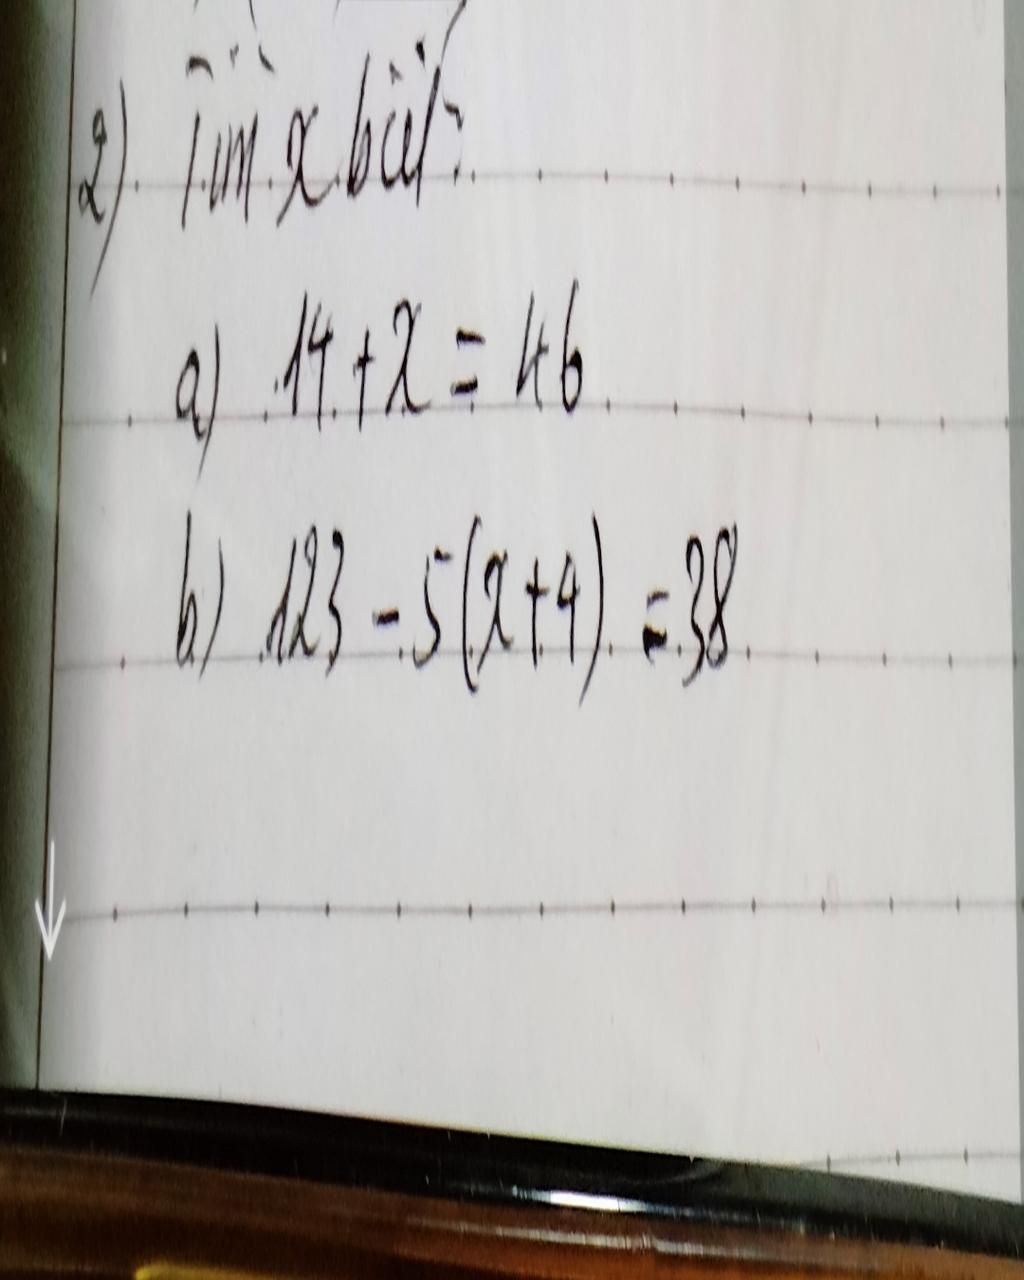 2) Tìm x biết:
a) 14 + x = 46
b) 123 - 5(x+4) = 38